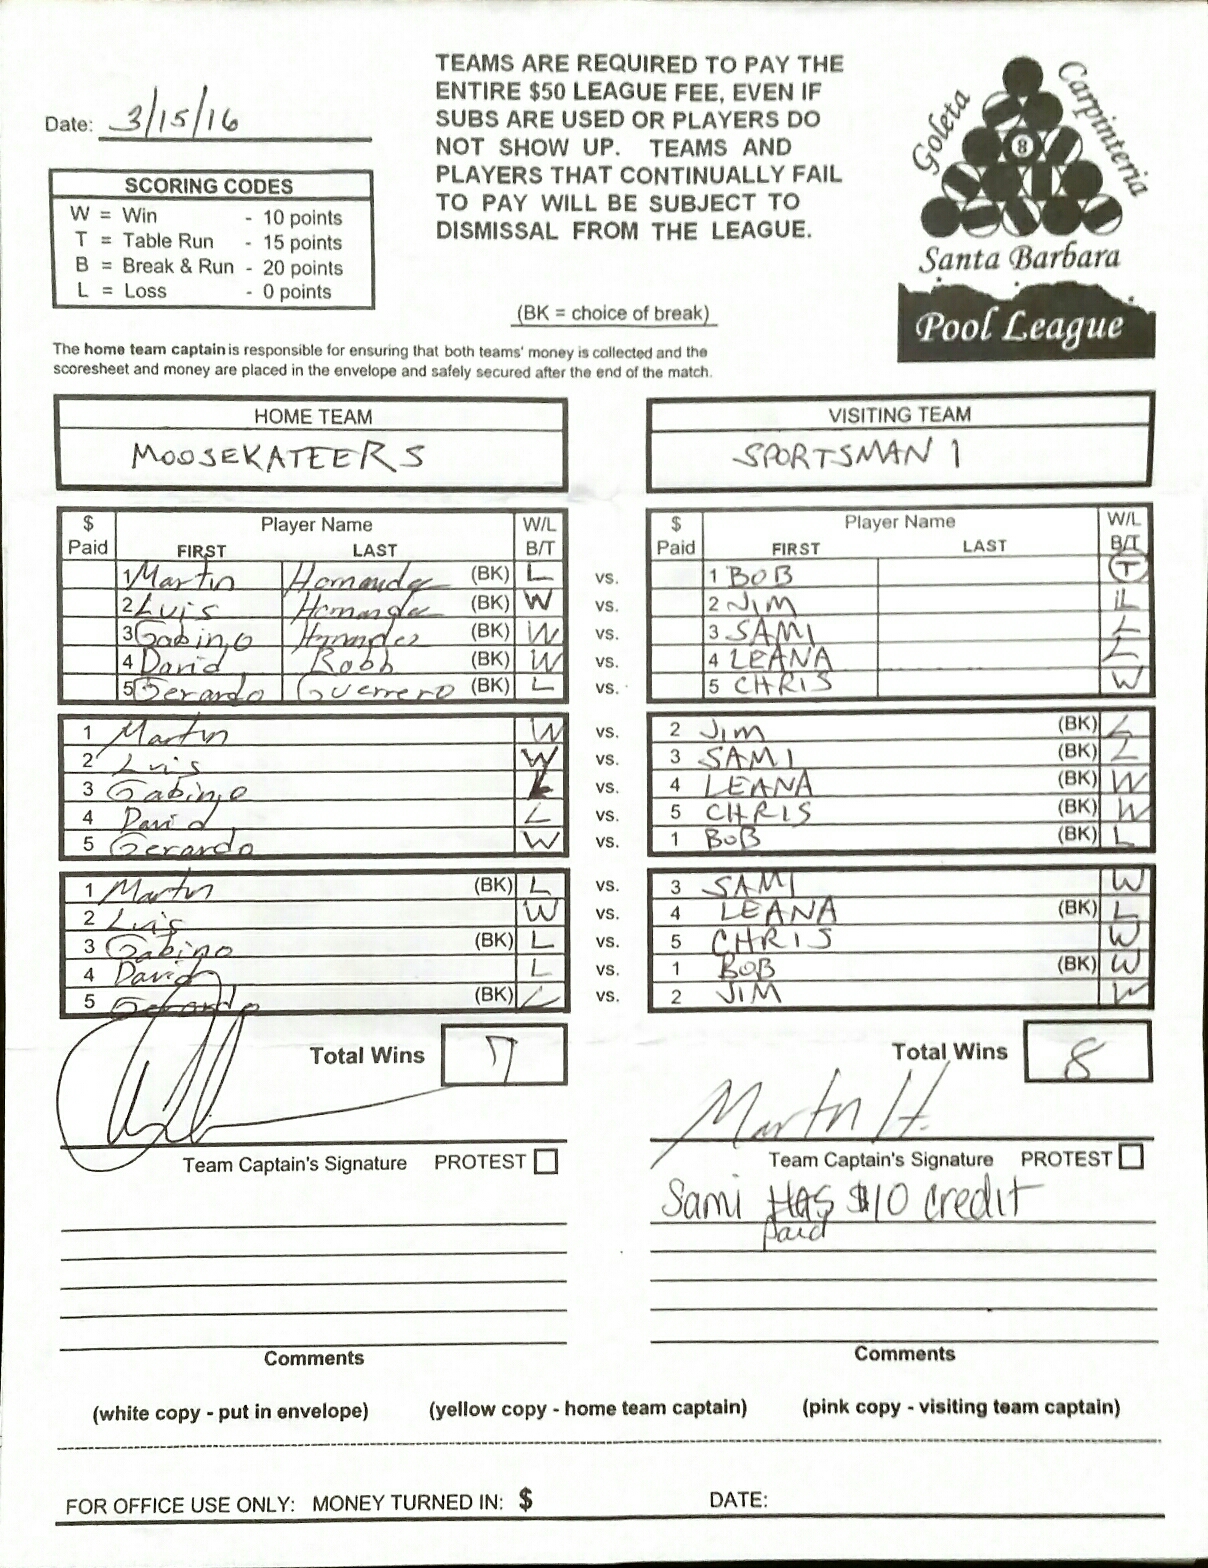 Date: 3/15/16
TEAMS ARE REQUIRED TO PAY THE
ENTIRE $50 LEAGUE FEE, EVEN IF
SUBS ARE USED OR PLAYERS DO
NOT SHOW UP. TEAMS AND
PLAYERS THAT CONTINUALLY FAIL
TO PAY WILL BE SUBJECT TO
DISMISSAL FROM THE LEAGUE.
Goleta
Carpinteria
8
Santa Barbara
Pool League
SCORING CODES
W = Win - 10 points
T = Table Run - 15 points
B = Break & Run - 20 points
L = Loss - 0 points
(BK = choice of break)
The home team captain is responsible for ensuring that both teams' money is collected and the
scoresheet and money are placed in the envelope and safely secured after the end of the match.
HOME TEAM VISITING TEAM
MOOSEKATEERS SPORTSMAN 1
$ Player Name W/L $ Player Name W/L
Paid FIRST LAST B/T Paid FIRST LAST B/T
1 Martin (BK) L vs. 1 BOB T
2 Luis (BK) W vs. 2 JIM L
3 Gabino (BK) W vs. 3 SAMI L
4 David Robb (BK) W vs. 4 LEANA L
5 Gerardo Guerrero (BK) L vs. 5 CHRIS W
1 Martin W vs. 2 Jim (BK) L
2 Luis W vs. 3 SAMI (BK) L
3 Gabino L vs. 4 LEANA (BK) W
4 David L vs. 5 CHRIS (BK) W
5 Gerardo W vs. 1 BOB (BK) L
1 Martin (BK) L vs. 3 SAMI W
2 Luis W vs. 4 LEANA (BK) L
3 Gabino (BK) L vs. 5 CHRIS W
4 David L vs. 1 BOB (BK) W
5 Gerardo (BK) L vs. 2 JIM W
Total Wins 7 Total Wins 8
Martin H.
Team Captain's Signature PROTEST Team Captain's Signature PROTEST
Sami HAS $10 credit
paid
Comments Comments
(white copy - put in envelope) (yellow copy - home team captain) (pink copy - visiting team captain)
FOR OFFICE USE ONLY: MONEY TURNED IN: $ DATE: